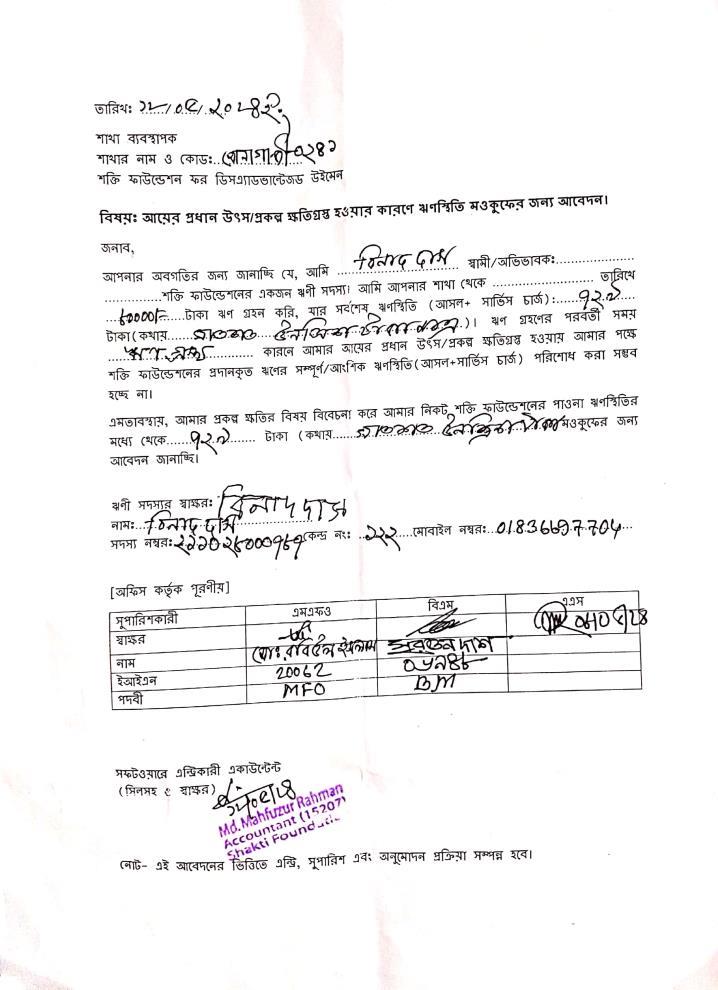 তারিখঃ
শাখা ব্যবস্থাপক
শাখার নাম ও কোড:
শক্তি ফাউন্ডেশন ফর ডিসএ্যাডভান্টেজড উইমেন
বিষয়: আয়ের প্রধান উৎস/প্রকল্প ক্ষতিগ্রস্ত হওয়ার কারণে ঋণস্থিতি মওকুফের জন্য আবেদন।
জনাব,
আপনার অবগতির জন্য জানাচ্ছি যে, আমি বিনাদ দাস স্বামী/অভিভাবক:
শক্তি ফাউন্ডেশনের একজন ঋণী সদস্য। আমি আপনার শাখা থেকে তারিখে
৮০০০০/= টাকা ঋণ গ্রহন করি, যার সর্বশেষ ঋণস্থিতি (আসল+ সার্ভিস চার্জ):
টাকা(কথায় )। ঋণ গ্রহণের পরবর্তী সময়
কারনে আমার আয়ের প্রধান উৎস/প্রকল্প ক্ষতিগ্রস্ত হওয়ায় আমার পক্ষে
শক্তি ফাউন্ডেশনের প্রদানকৃত ঋণের সম্পূর্ণ/আংশিক ঋণস্থিতি(আসল+সার্ভিস চার্জ) পরিশোধ করা সম্ভব
হচ্ছে না।
এমতাবস্থায়, আমার প্রকল্প ক্ষতির বিষয় বিবেচনা করে আমার নিকট শক্তি ফাউন্ডেশনের পাওনা ঋণস্থিতির
মধ্যে থেকে টাকা (কথায় মওকুফের জন্য
আবেদন জানাচ্ছি।
ঋণী সদস্যর স্বাক্ষর: বিনাদ দাস
নাম: বিনাদ দাস
সদস্য নম্বর: কেন্দ্র নং: ১২২ মোবাইল নম্বর: 01836697704
[অফিস কর্তৃক পূরণীয়]
সুপারিশকারী এমএফও বিএম এএস
স্বাক্ষর
নাম
ইআইএন 20062
পদবী MFO BM
সফটওয়ারে এন্ট্রিকারী একাউন্টেন্ট
(সিলসহ ও স্বাক্ষর)
Md. Mahfuzur Rahman
Accountant (15207)
Shakti Foundatic
নোট- এই আবেদনের ভিত্তিতে এন্ট্রি, সুপারিশ এবং অনুমোদন প্রক্রিয়া সম্পন্ন হবে।